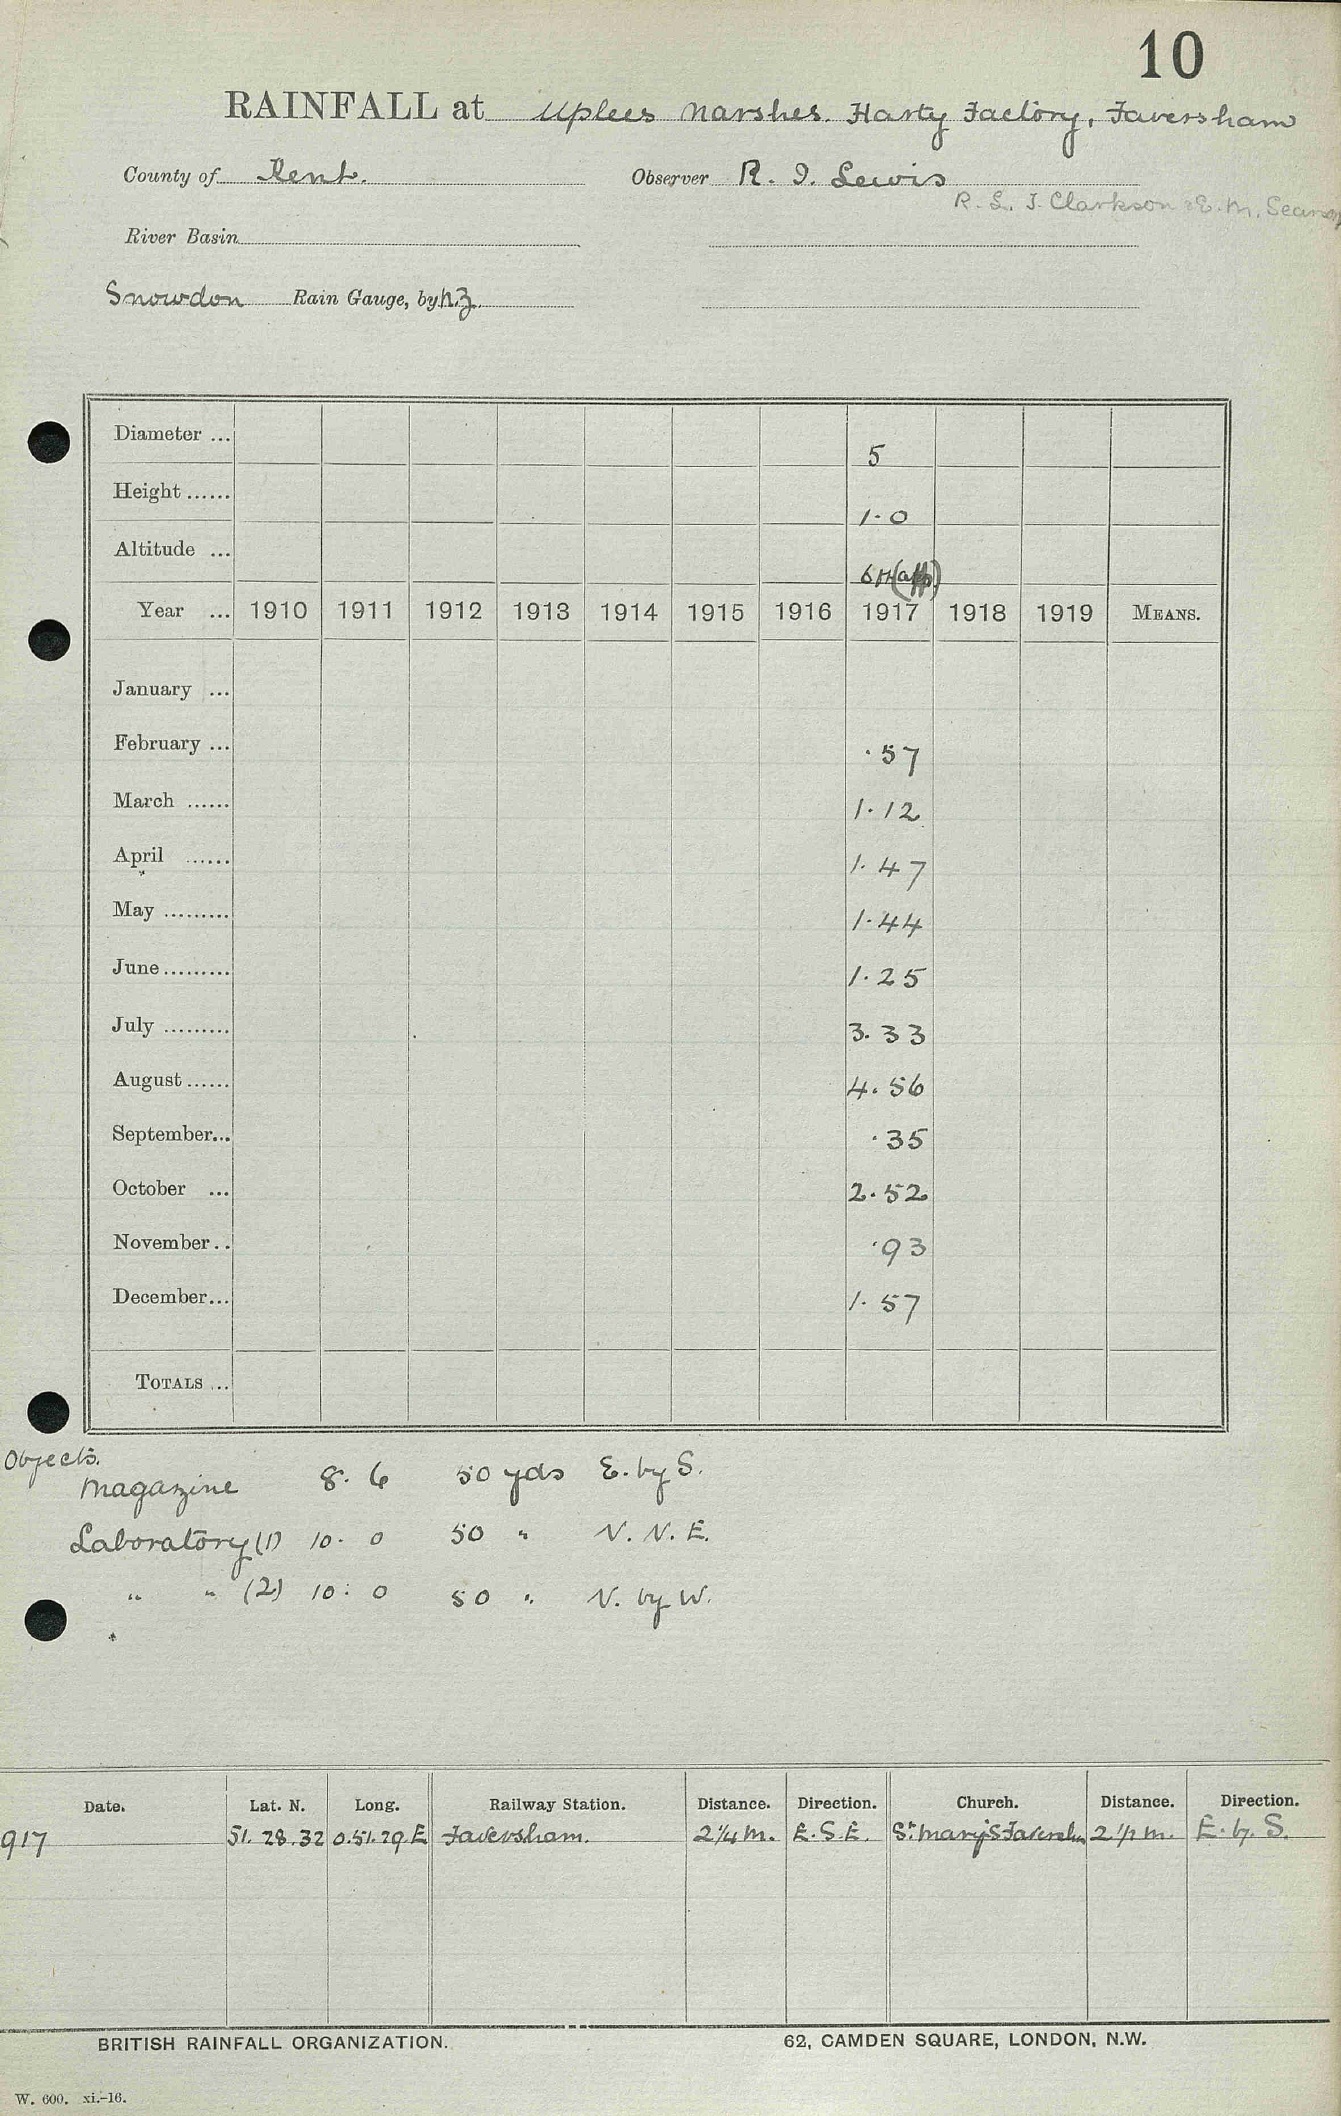 10
RAINFALL at Uplees Marshes. Harty Factory, Faversham
County of Kent. Observer R. I. Lewis
R. L. J. Clarkson & E. M.
River Basin
Snowdon Rain Gauge, by NZ.
Diameter ... 5
Height ...... 1.0
Altitude ... 6 ft (app)
Year ... 1910 1911 1912 1913 1914 1915 1916 1917 1918 1919 MEANS.
January ...
February ... .57
March ...... 1.12
April ...... 1.47
May ......... 1.44
June ......... 1.25
July ......... 3.33
August ...... 4.56
September... .35
October ... 2.52
November .. .93
December... 1.57
TOTALS ...
Objects.
Magazine 8. 6 50 yds E. by S.
Laboratory (1) 10. 0 50 " N. N. E.
" " (2) 10: 0 50 " N. by W.
Date. Lat. N. Long. Railway Station. Distance. Direction. Church. Distance. Direction.
917 51. 28. 32 0.51.29.E Faversham. 2 1/4 m. E.S.E. St. Mary's 2 1/2 m. E. by. S.
BRITISH RAINFALL ORGANIZATION. 62, CAMDEN SQUARE, LONDON, N.W.
W. 600. xi.-16.